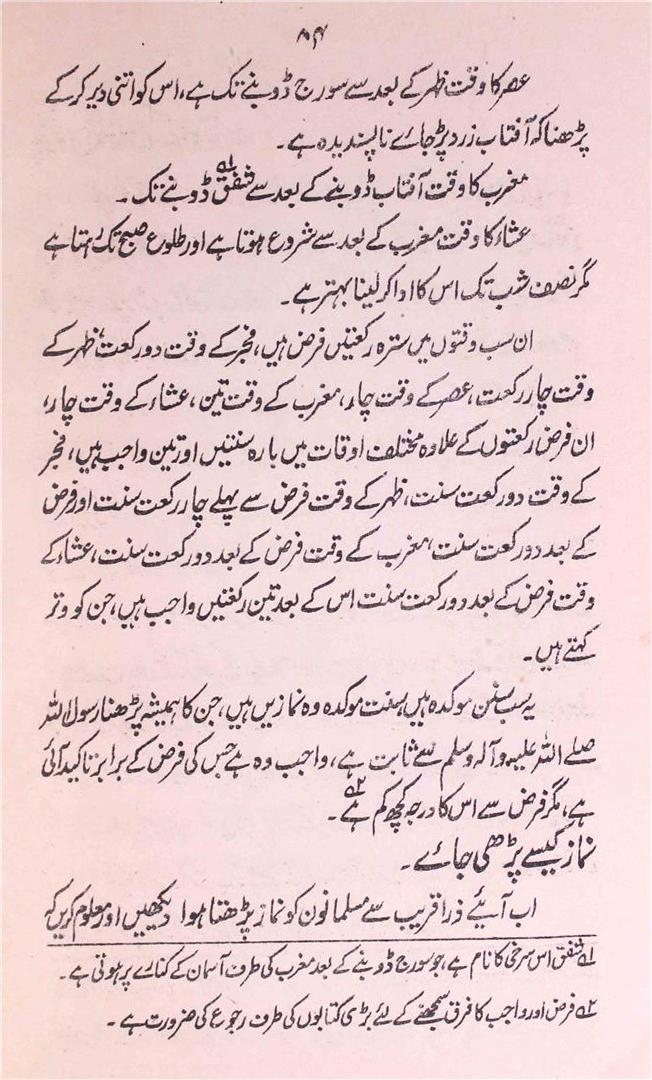 ۸۴
عصر کا وقت ظہر کے بعد سے سورج ڈوبنے تک ہے، اس کو اتنی دیر کر کے
پڑھنا کہ آفتاب زرد پڑ جائے ناپسندیدہ ہے۔
مغرب کا وقت آفتاب ڈوبنے کے بعد سے شفق ؎۱ ڈوبنے تک۔
عشاء کا وقت مغرب کے بعد سے شروع ہوتا ہے اور طلوع صبح تک رہتا ہے
مگر نصف شب تک اس کا ادا کر لینا بہتر ہے۔
ان سب وقتوں میں سترہ رکعتیں فرض ہیں، فجر کے وقت دو رکعت، ظہر کے
وقت چار رکعت، عصر کے وقت چار، مغرب کے وقت تین، عشاء کے وقت چار،
ان فرض رکعتوں کے علاوہ مختلف اوقات میں بارہ سنتیں اور تین واجب ہیں، فجر
کے وقت دو رکعت سنت، ظہر کے وقت فرض سے پہلے چار رکعت سنت اور فرض
کے بعد دو رکعت سنت، مغرب کے وقت فرض کے بعد دو رکعت سنت، عشاء کے
وقت فرض کے بعد دو رکعت سنت اس کے بعد تین رکعتیں واجب ہیں، جن کو وتر
کہتے ہیں۔
یہ سب سنن موکدہ ہیں، سنت موکدہ وہ نمازیں ہیں، جن کا ہمیشہ پڑھنا رسول اللہ
صلے اللہ علیہ و آلہ وسلم سے ثابت ہے، واجب وہ ہے جس کی فرض کے برابر تاکید آئی
ہے، مگر فرض سے اس کا درجہ کچھ کم ہے ؎۲۔
نماز کیسے پڑھی جائے۔
اب آیئے ذرا قریب سے مسلمانوں کو نماز پڑھتا ہوا دیکھیں اور معلوم کریں کہ
؎۱ شفق اس سرخی کا نام ہے، جو سورج ڈوبنے کے بعد مغرب کی طرف آسمان کے کنارے پر ہوتی ہے۔
؎۲ فرض اور واجب کا فرق سمجھنے کے لئے بڑی کتابوں کی طرف رجوع کی ضرورت ہے۔